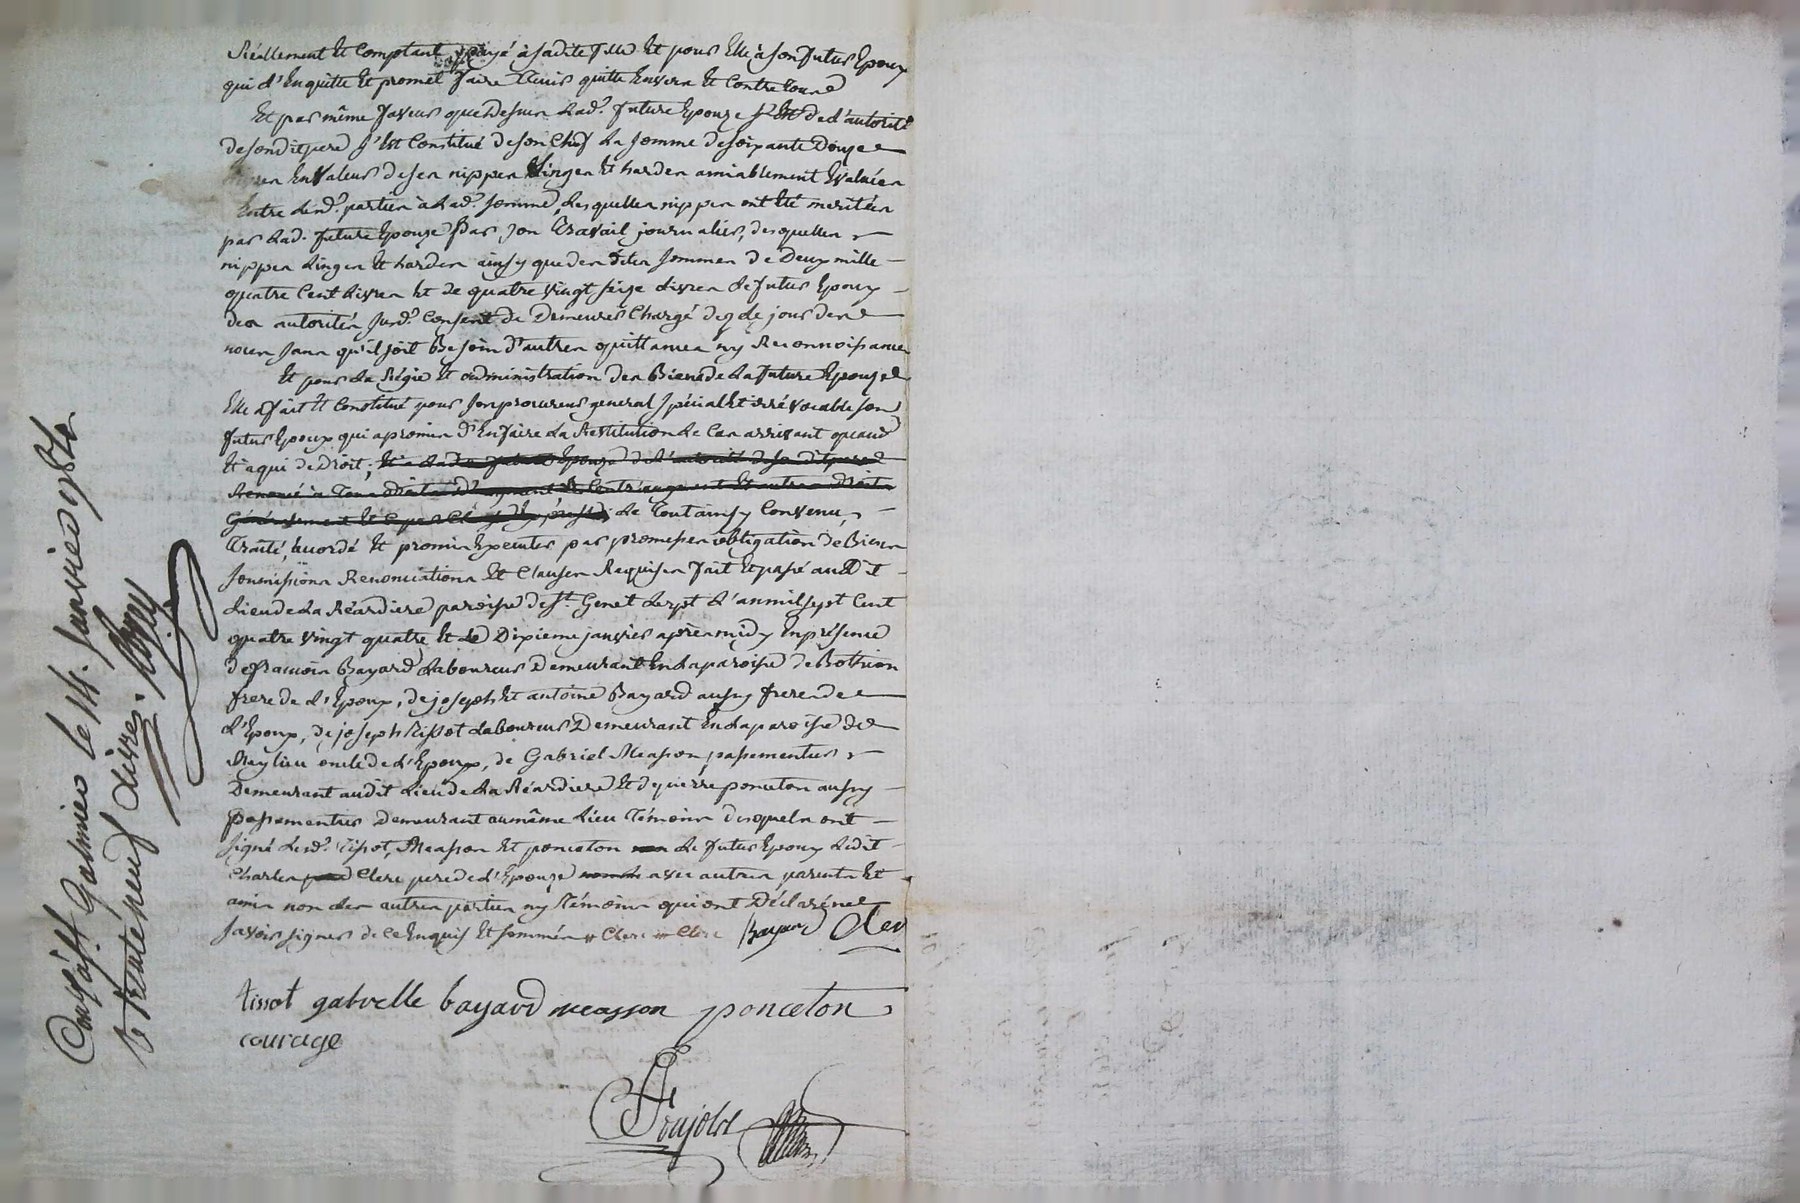 Réellement Et Comptant payé à sadite fille Et pour Elle à son futur Epoux
qui l'En quitte Et promet faire Tenir quitte Envers Et Contre tous
Et par même faveur que Dessus Lad.e future Epouze de l'autorité
de sondit pere s'Est Constitué de son Chef La somme de soixante Douze
Livres En Valeur de ses nippes Linges Et hardes amiablement Evaluées
Entre Lesd.es parties à Lad.e somme, Lesquelles nippes ont Eté meritées
par Lad. future Epouze par son Travail journalier, desquelles
nippes Linges Et hardes ainsy que des dites sommes de Deux mille
quatre Cent Livres Et de quatre vingt seize Livres Le futur Epoux
des autorités susd.es Consent de Demeurer Chargé dez le jour des
noces sans qu'il soit Besoin d'autres quittances ny Reconnoissances
Et pour La Régie Et administration des Biens de La future Epouze
Elle a fait Et Constitué pour son procureur general spécial Et irrévocable son
futur Epoux qui a promis d'En faire La Restitution Le Cas arrivant quand
Et à qui de Droit; Et a Lad.e future Epouze de L'autorité de sondit pere
Renoncé à Tous Droits d'augment Et Contr'augment Et autres Droits
Le Tout ainsy Convenu,
Traité, accordé Et promis Executer par promesses obligation de Biens
soumissions Renonciations Et Clauses Requises fait Et passé audit
Lieu de La Réardiere paroisse de St. Genet Lerpt L'an mil sept Cent
quatre vingt quatre Et Le Dixieme janvier après midy En présence
de françois Bayard Laboureur Demeurant En La paroisse de Bothéon
frere de L'Epoux, de joseph Et antoine Bayard aussy freres de
L'Epoux, de joseph Tissot Laboureur Demeurant En La paroisse de
Meylieu oncle de L'Epoux, de Gabriel Measson passementier
Demeurant audit Lieu de La Réardiere Et de pierre ponceton aussy
passementier Demeurant au même Lieu Témoins desquels ont
signé Lesd. Tissot, Measson Et ponceton Le futur Epoux Ledit
Charles Clerc pere de L'Epouze avec autres parents Et
amis non Les autres parties ny Témoins qui ont Déclaré ne
savoir signer de ce Enquis Et sommés Clerc Clerc Bayard Clerc
tissot gabrielle bayard measson ponceton
courage
Frajolet
Con.lé à St Galmier le 14. Janvier 1784
R. trente neuf Livres.